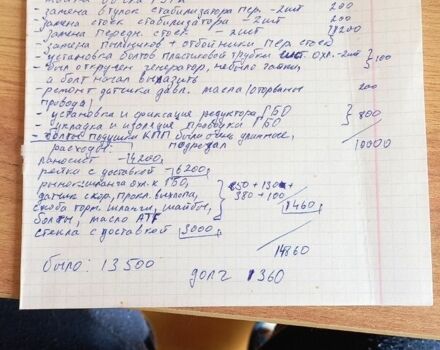 - замена втулок стабилизатора пер. - 2шт 200
- замена стоек стабилизатора - 2шт 200
- замена передн. стоек - 2шт 1200
- замена пыльников + отбойники пер. стоек
- установка болтов пластиковой трубки сист. охл. - 2шт
- был откручен генератор, не было гайки, } 100
а болт начал вылазить
- ремонт датчика давл. масла (оторваны 200
провода)
- установка и фиксация редуктора ГБО
- укладка и изоляция проводки ГБО } 800
- болты подушки КПП были очень длинные,
расходы: подрезал 10000
лансост - 4200,
рейка с доставкой - 6200,
охл. к ГБО, 850 + 130 +
датчик скор., прокл. выхлопа, 380 + 100
скоба торм. шланги, шайбы, 1460
болты, масло ATF
стекла с доставкой 3000
14860
было: 13500
долг 1360